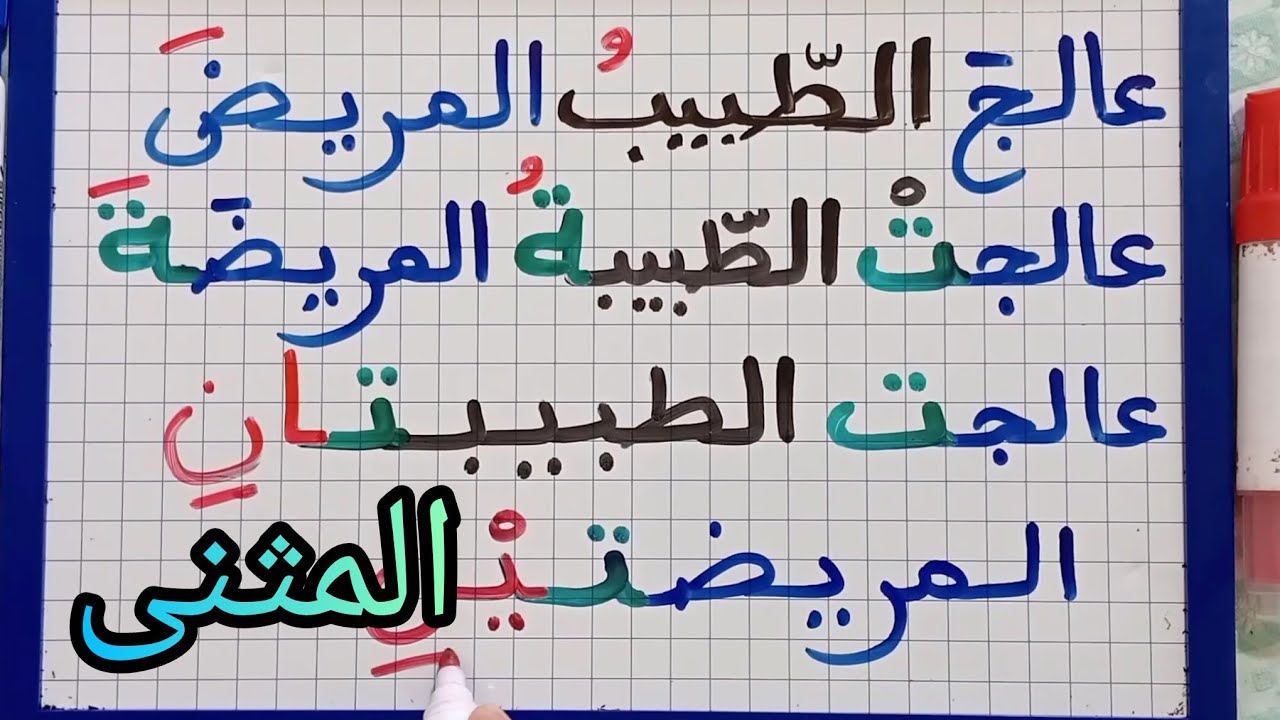 عالجَ الطّبيبُ المريضَ
عالجتْ الطّبيبةُ المريضَةَ
عالجت الطبيبتانِ
المريضتيْنِ
المثنى